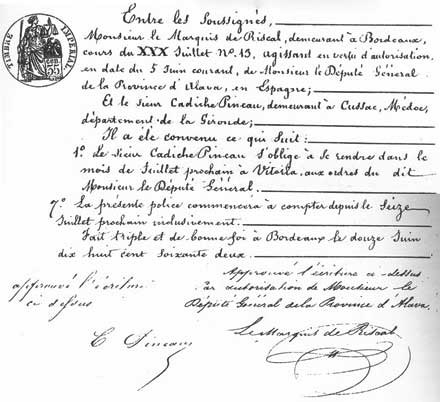 TIMBRE IMPERIAL
35
Entre les Soussignés,
Monsieur le Marquis de Riscal, demeurant à Bordeaux,
cours du XXX Juillet Nº. 13, agissant en vertu d'autorisation,
en date du 5 Juin courant, de Monsieur le Député Général
de la Province d'Alava, en Espagne;
Et le sieur Cadiche Pineau, demeurant à Cussac, Medoc,
département de la Gironde;
Il a éte convenu ce qui Suit:
1º. Le sieur Cadiche Pineau s'oblige à se rendre dans le
mois de Juillet prochain à Vitoria, aux ordres du dit
Monsieur le Député Général.
7º. La présente police commencera à compter depuis le Seize
Juillet prochain inclusivement.
Fait triple et de bonne foi à Bordeaux le douze Juin
dix huit cent soixante deux.
approuvé l'écriture
ci dessus
Approuvé l'écriture ci dessus
par autorisation de Monsieur le
Député Général de la Province d'Alava
C Pineau
Le Marquis de Riscal